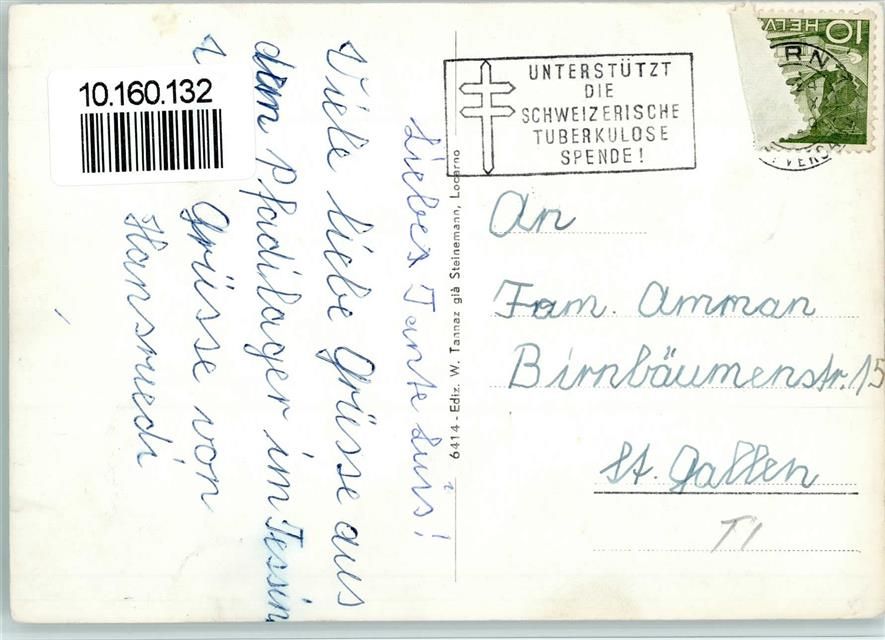 10.160.132
UNTERSTÜTZT
DIE
SCHWEIZERISCHE
TUBERKULOSE
SPENDE!
10
HELV
RN
VERSA
An
Fam. Amman
Birnbäumenstr. 15
St. Gallen
TI
6414 - Ediz. W. Tannaz già Steinemann, Locarno
Liebes Tante Luis!
Viele liebe Grüsse aus
dem Pfadilager im Tessin
Grüsse von
Hansruedi